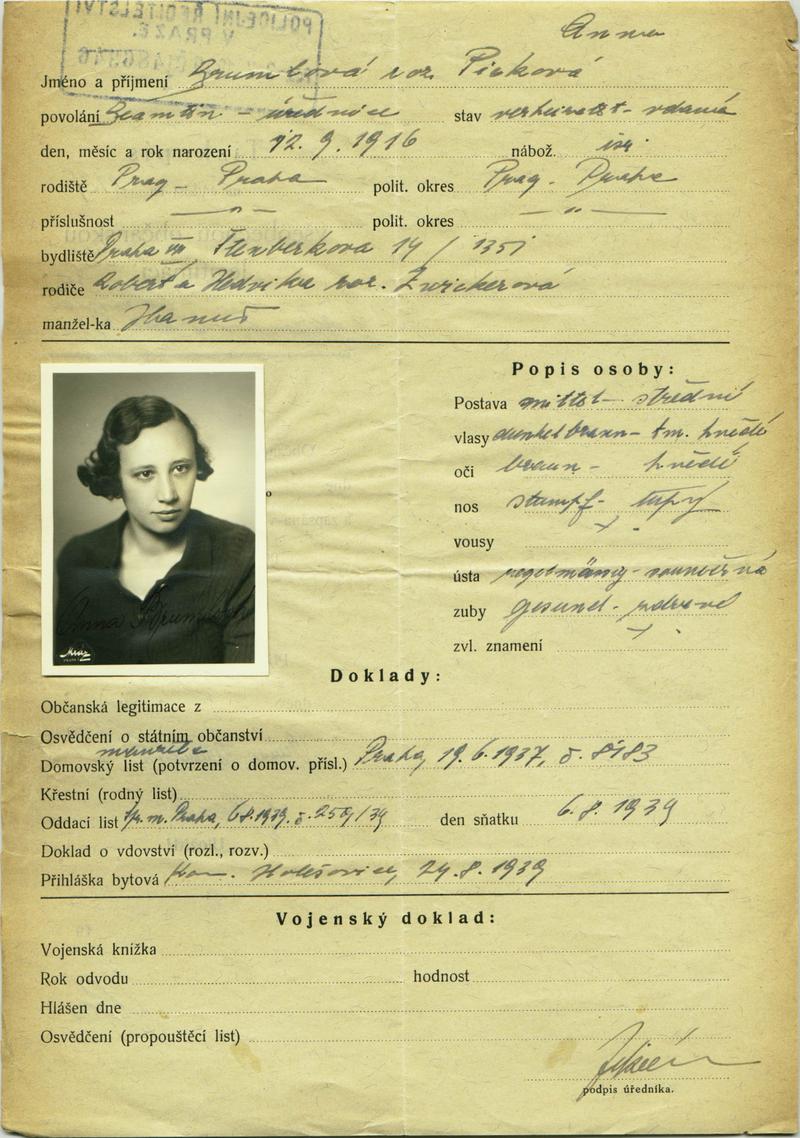 POLICEJNÍ ŘEDITELSTVÍ
V PRAZE.
Anna
Jméno a příjmení Brumlová roz. Picková
povolání Beamtin - úřednice stav verheiratet - vdaná
den, měsíc a rok narození 12. 9. 1916 nábož. isr.
rodiště Prag - Praha polit. okres Prag - Praha
příslušnost — " — polit. okres — " —
bydliště Praha VII 14 / 1351
rodiče Robert a Hedvika roz. Zwickerová
manžel-ka Hanuš
Popis osoby:
Postava mittel - střední
vlasy dunkelbraun - tm. hnědé
oči braun - hnědé
nos stumpf - tupý
vousy
ústa regelmässig - souměrná
zuby gesund - zdravé
zvl. znamení
Anna Brumlová
Doklady:
Občanská legitimace z
Osvědčení o státním občanství
manžela
Domovský list (potvrzení o domov. přísl.) Praha, 19. 6. 1937, č. 8183
Křestní (rodný list)
Oddací list m. Praha, 6.8.1939. č. 259/39 den sňatku 6. 8. 1939
Doklad o vdovství (rozl., rozv.)
Přihláška bytová Kom. Holešovice, 24. 8. 1939
Vojenský doklad:
Vojenská knížka
Rok odvodu hodnost
Hlášen dne
Osvědčení (propouštěcí list)
podpis úředníka.